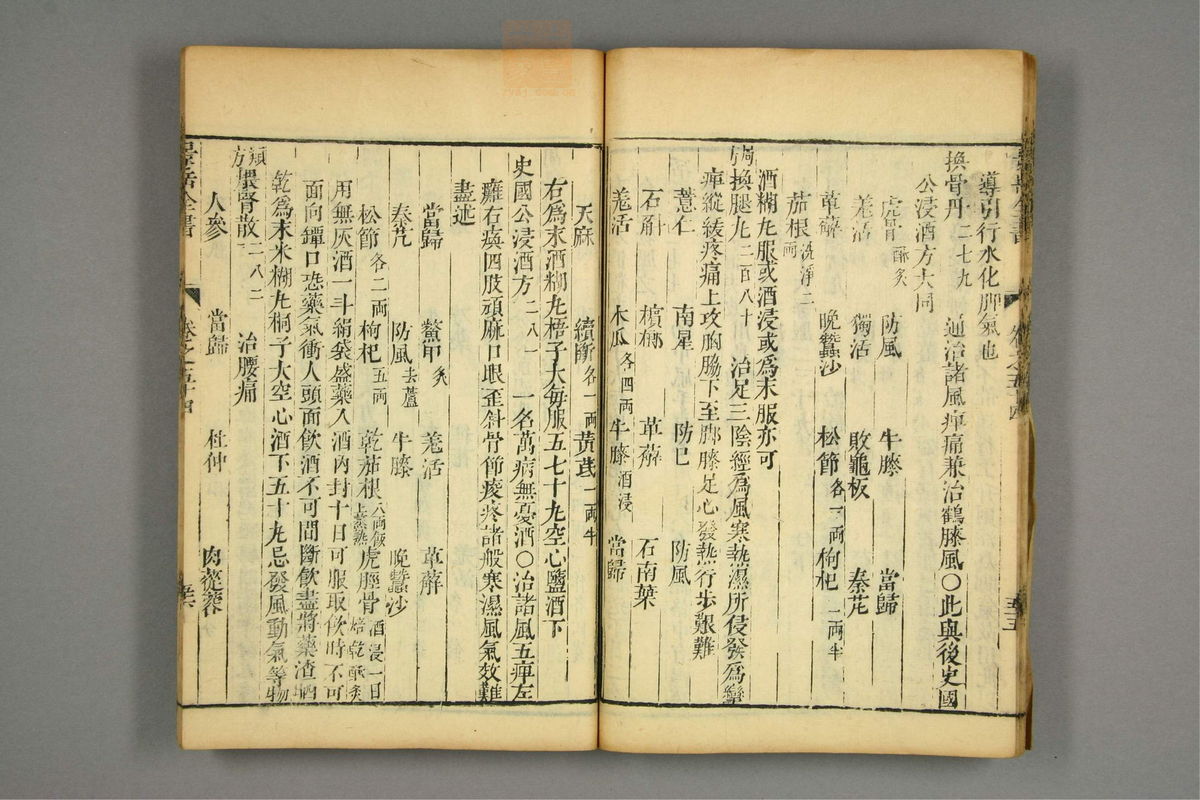 導引行水化脚氣也
換骨丹二七九　通治諸風痺痛兼治鶴膝風○此與後史國
公浸酒方大同
虎骨酥炙　防風　牛膝　當歸
羌活　獨活　敗龜板　秦艽
萆薢　晚蠶沙　松節各一兩　枸杞一兩半
茄根洗淨二兩
酒糊丸服或酒浸或爲末服亦可
換腿丸二百八十　治足三陰經爲風寒熱濕所侵發爲攣
痺縱緩疼痛上攻胸脇下至脚膝足心發熱行步艱難
薏仁　南星　防巳　防風
石斛　檳榔　萆薢　石南葉
羌活　木瓜各四兩　牛膝酒浸　當歸
天麻　續斷各一兩　黃芪一兩半
右爲末酒糊丸梧子大每服五七十丸空心鹽酒下
史國公浸酒方二八一　一名萬病無憂酒○治諸風五痺左
癱右瘓四肢頑麻口眼歪斜骨節痠疼諸般寒濕風氣效難
盡述
當歸　鱉甲炙　羌活　萆薢
秦艽　防風去蘆　牛膝　晚蠶沙
松節各二兩　枸杞五兩　乾茄根八兩飯上蒸熟　虎脛骨酒浸一日焙乾酥炙
用無灰酒一斗絹袋盛藥入酒內封十日可服取飲時不可
面向罈口恐藥氣衝人頭面飲酒不可間斷飲盡將藥渣晒
乾爲末米糊丸桐子大空心酒下五十丸忌發風動氣等物
煨腎散二八二　治腰痛
人參　當歸　杜仲　肉蓯蓉
景岳全書　卷之五十四